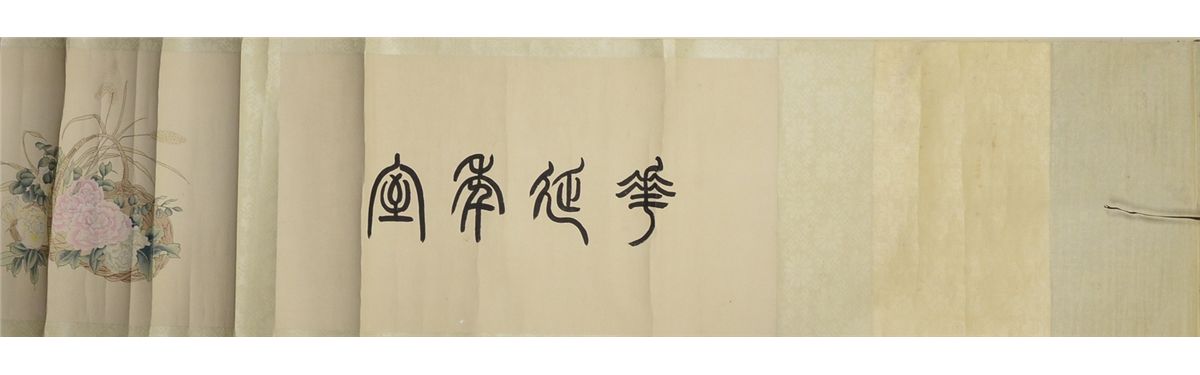 華延年室